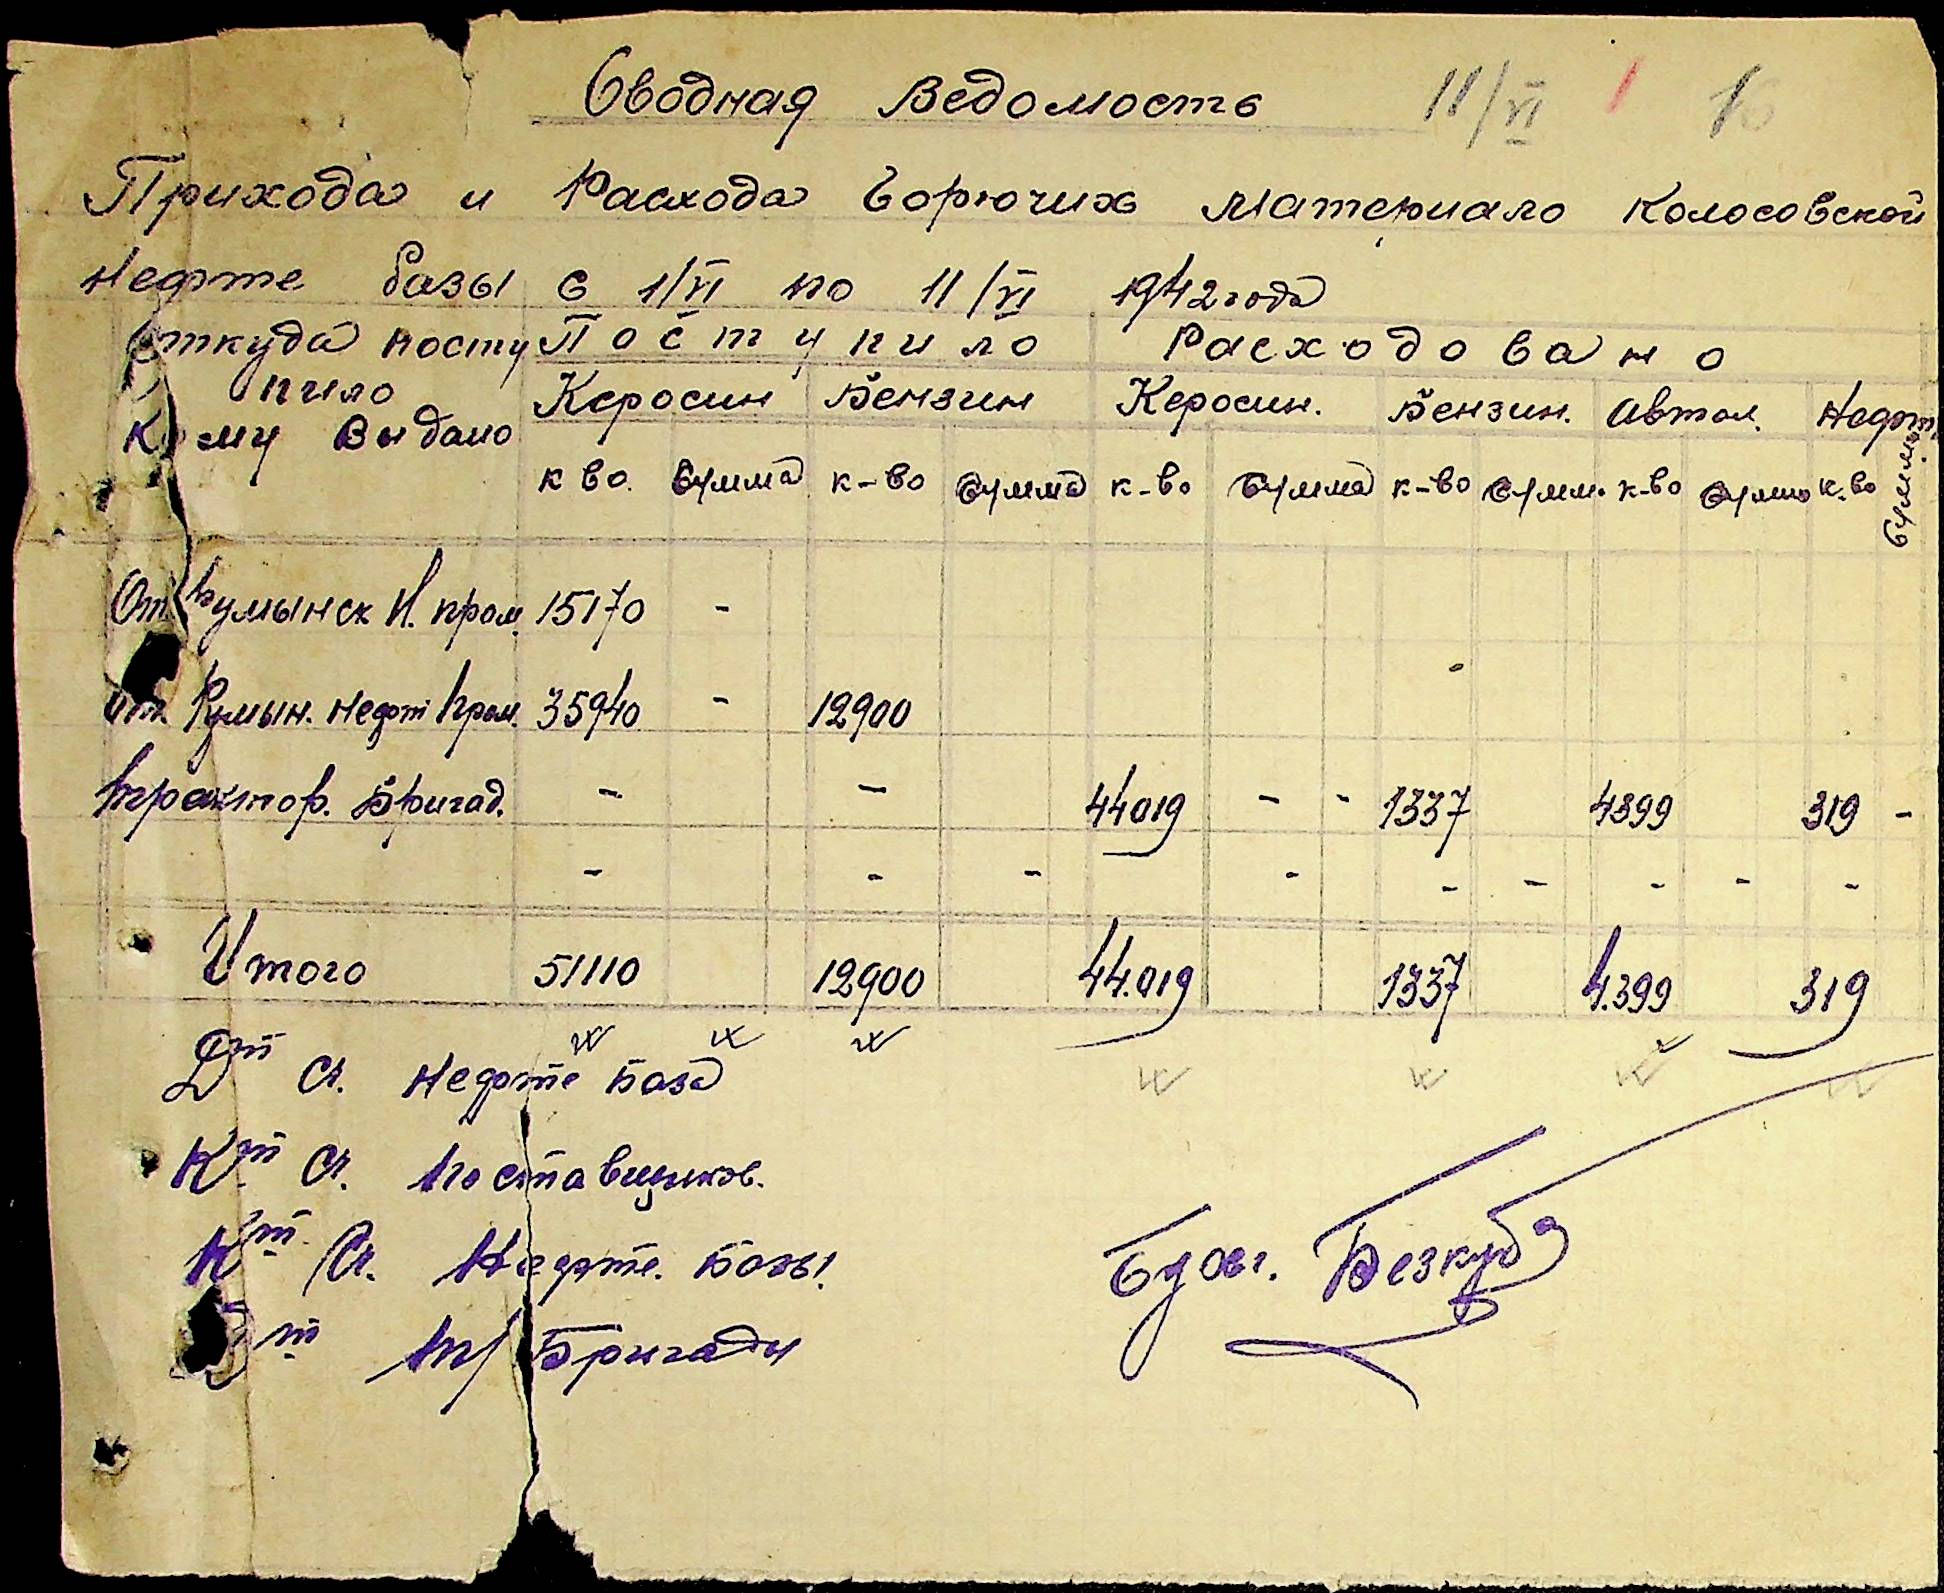 Сводная Ведомость 11/VI 1
Прихода и Расхода Горючих материало Колосовской
Нефте базы с 1/VI по 11/VI 1942 года
Откуда посту Поступило Расходовано
пило Керосин Бензин Керосин. Бензин. Автол. Нефт.
Кому Выдано к во. Сумма к-во Сумма к-во Сумма к-во Сумм. к-во Сумма к-во Сумма
От Румынск Н. пром. 15170 -
От Румын. Нефт Пром. 35940 - 12900
Трактор. Бригад. - - 44019 - - 1337 4399 319 -
- - - - - - - - -
Итого 51110 12900 44.019 1337 4.399 319
Дт Сч. Нефте База
Кт Сч. Поставщиков.
Кт Сч. Нефте. Базы.
Дт Тр/Бригады
Бухг. Безкуб